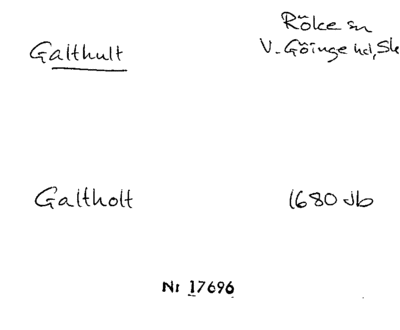 Röke sn
Galthult
V. Göinge hd, Sk
Galtholt
1680 Jb
Nr 17696